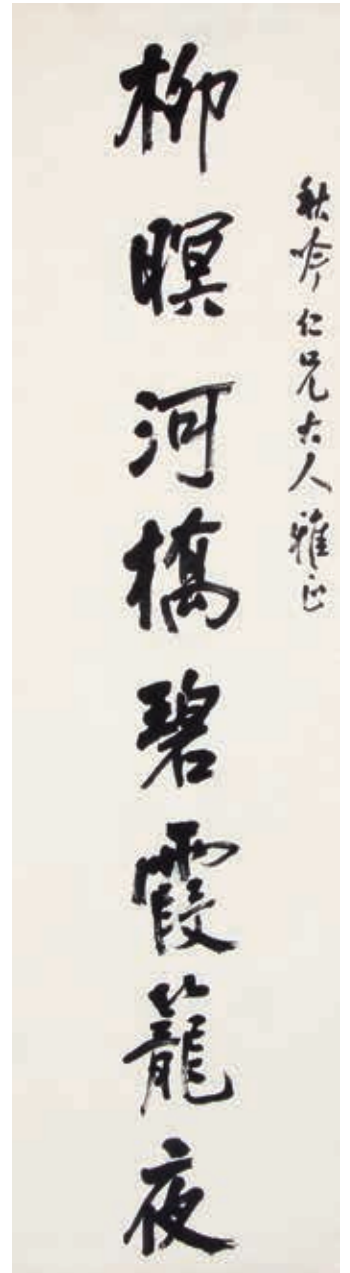 秋吟仁兄大人雅正
柳暝河橋碧霞籠夜